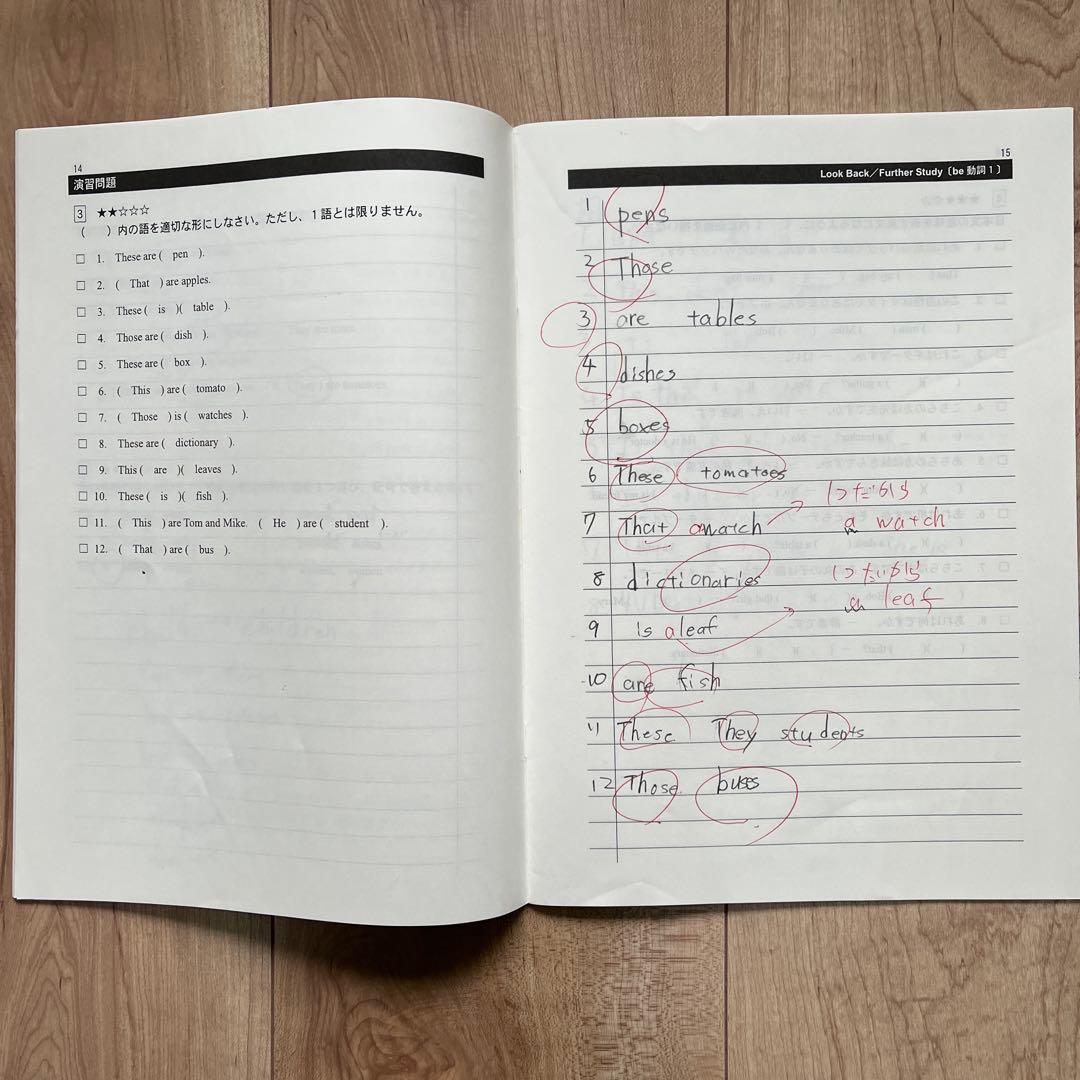 14
演習問題
3 ★★☆☆☆
( )内の語を適切な形にしなさい。ただし、1語とは限りません。
□ 1. These are ( pen ).
□ 2. ( That ) are apples.
□ 3. These ( is )( table ).
□ 4. Those are ( dish ).
□ 5. These are ( box ).
□ 6. ( This ) are ( tomato ).
□ 7. ( Those ) is ( watches ).
□ 8. These are ( dictionary ).
□ 9. This ( are )( leaves ).
□ 10. These ( is )( fish ).
□ 11. ( This ) are Tom and Mike. ( He ) are ( student ).
□ 12. ( That ) are ( bus ).
15
Look Back/Further Study〔be動詞1〕
1 pens
2 Those
3 are tables
4 dishes
5 boxes
6 These tomatoes
1つだから
7 That a watch a watch
8 dictionaries 1つだから
a leaf
9 is a leaf
10 are fish
11 These They students
12 Those buses